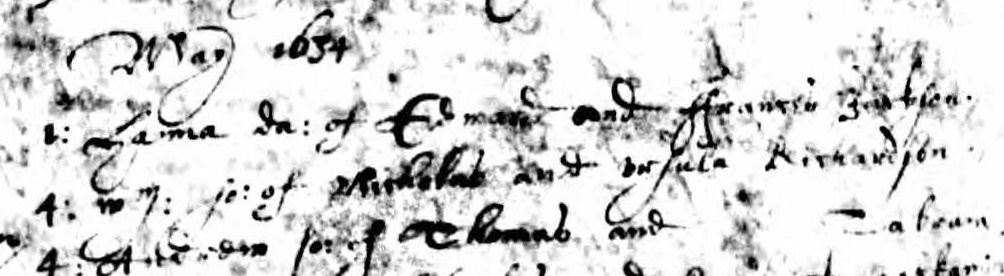 May 1634
1: Hanna da: of Edward and ffrancis Jackson.
4: Wm: so: of Nicholas and Ursula Richardson.
4: Andrew so: of Thomas and Tabram